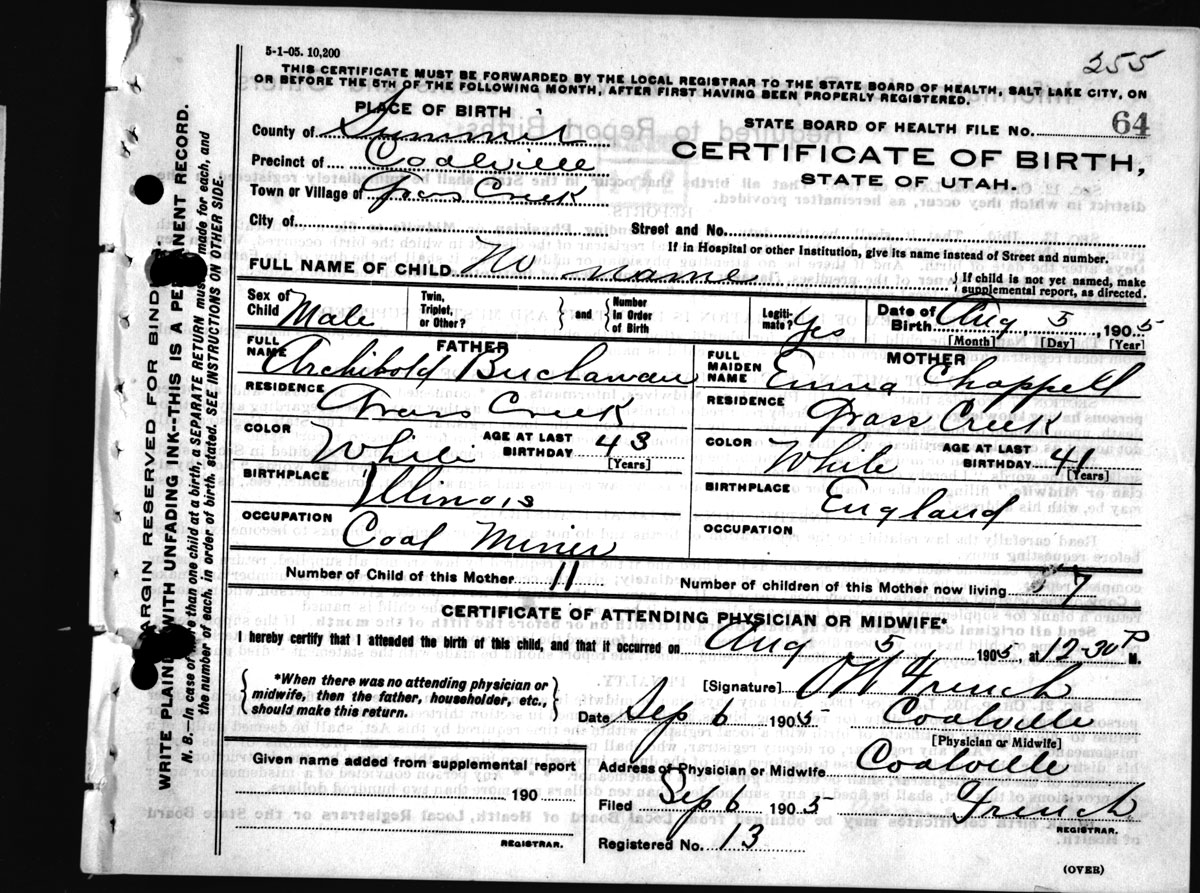 255
5-1-05. 10,200
THIS CERTIFICATE MUST BE FORWARDED BY THE LOCAL REGISTRAR TO THE STATE BOARD OF HEALTH, SALT LAKE CITY, ON
OR BEFORE THE 5TH OF THE FOLLOWING MONTH, AFTER FIRST HAVING BEEN PROPERLY REGISTERED.
PLACE OF BIRTH
STATE BOARD OF HEALTH FILE NO. 64
County of Summit
CERTIFICATE OF BIRTH,
STATE OF UTAH.
Precinct of Coalville
Town or Village of Grass Creek
City of Street and No.
If in Hospital or other Institution, give its name instead of Street and number.
FULL NAME OF CHILD No name } If child is not yet named, make supplemental report, as directed.
Sex of Child Male Twin, Triplet, or Other? } and { Number In Order of Birth Legitimate? Yes Date of Birth Aug 5, 1905
[Month] [Day] [Year]
FATHER MOTHER
FULL NAME Archibold Buchanan FULL MAIDEN NAME Emma Chappell
RESIDENCE Grass Creek RESIDENCE Grass Creek
COLOR White AGE AT LAST BIRTHDAY 43 [Years] COLOR White AGE AT LAST BIRTHDAY 41 [Years]
BIRTHPLACE Illinois BIRTHPLACE England
OCCUPATION Coal Miner OCCUPATION
Number of Child of this Mother 11 Number of children of this Mother now living 7
CERTIFICATE OF ATTENDING PHYSICIAN OR MIDWIFE*
I hereby certify that I attended the birth of this child, and that it occurred on Aug 5 1905, at 12-30 P M.
{ *When there was no attending physician or midwife, then the father, householder, etc., should make this return. }
[Signature] French
Date Sep 6 1905 Coalville
[Physician or Midwife]
Given name added from supplemental report
190
REGISTRAR.
Address of Physician or Midwife Coalville
Filed Sep 6 1905 French
REGISTRAR.
Registered No. 13
(OVER)
MARGIN RESERVED FOR BINDING
WRITE PLAINLY WITH UNFADING INK--THIS IS A PERMANENT RECORD.
N. B.—In case of more than one child at a birth, a SEPARATE RETURN must be made for each, and
the number of each, in order of birth, stated. SEE INSTRUCTIONS ON OTHER SIDE.